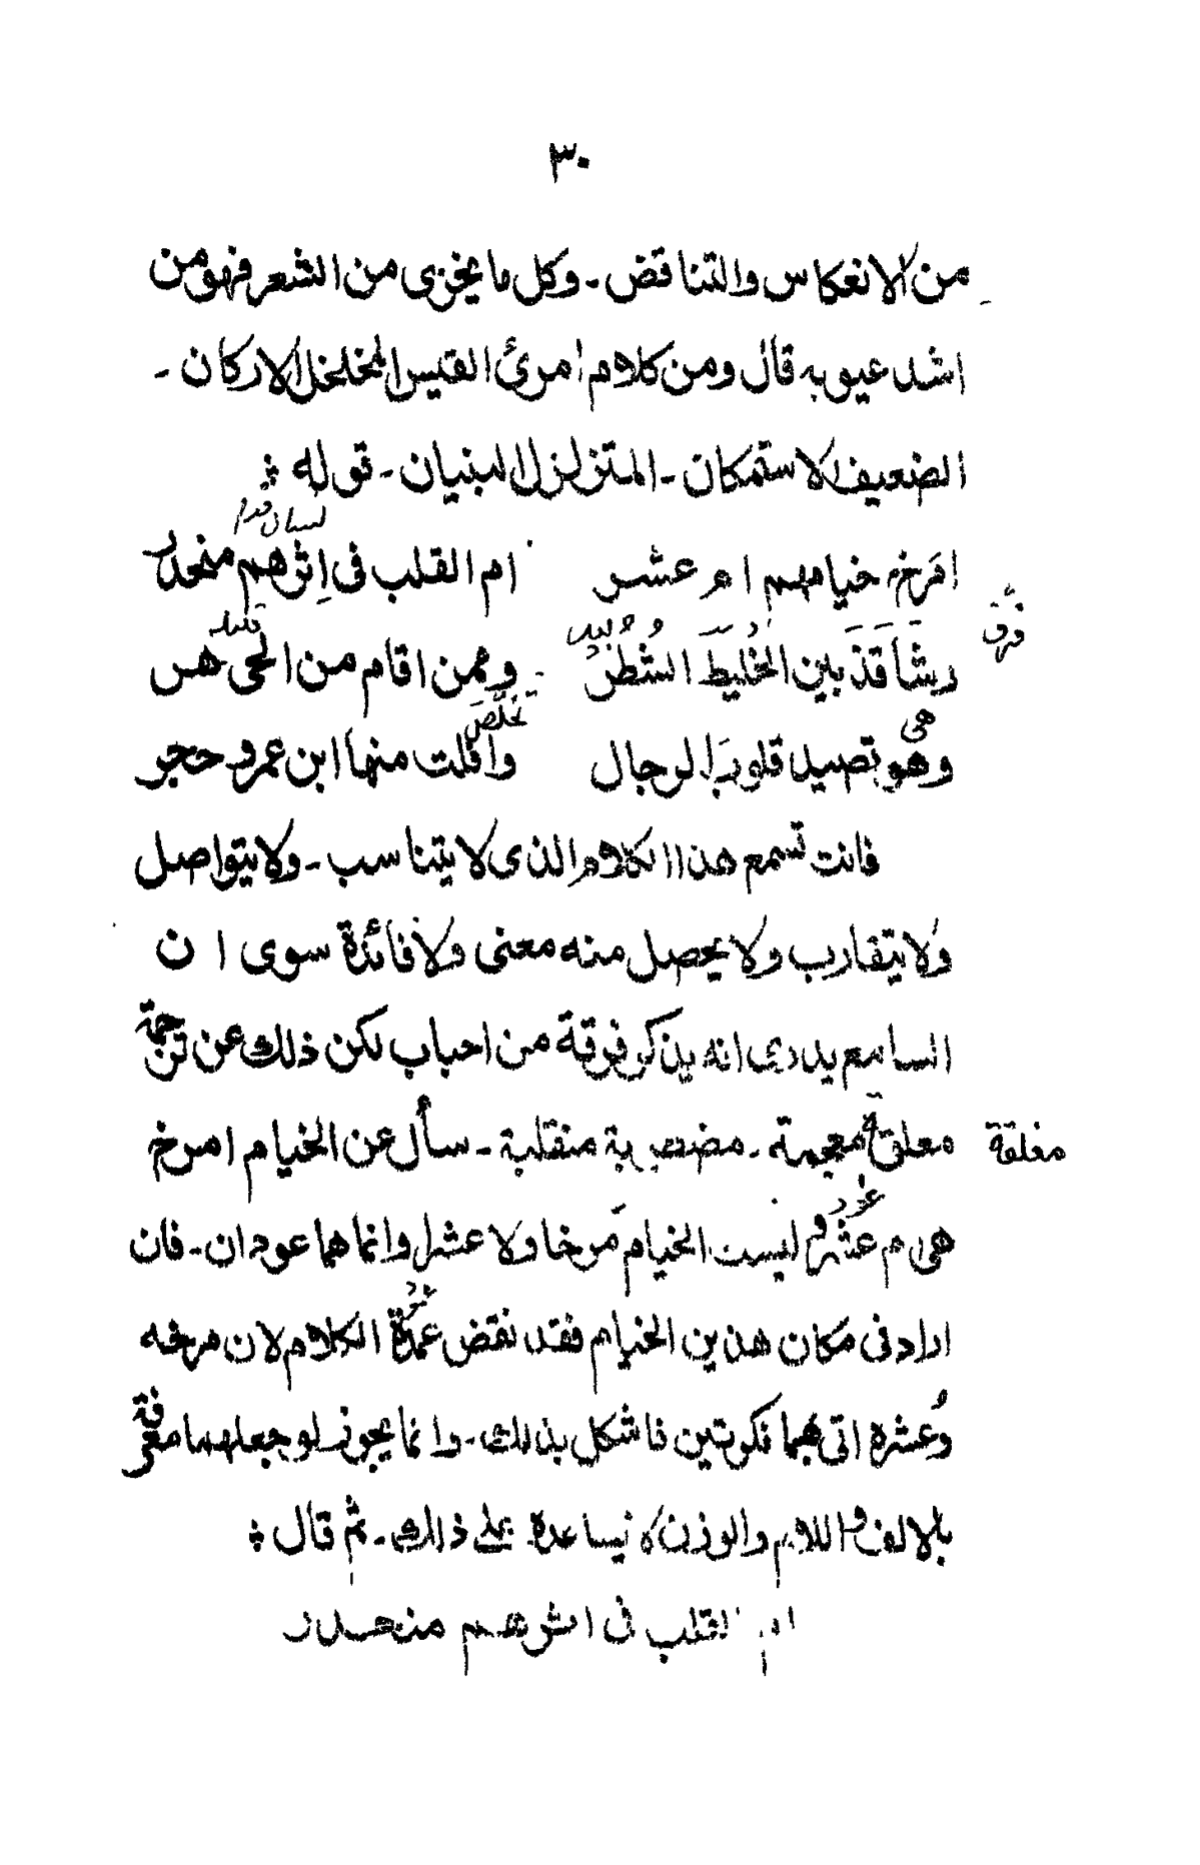 ٣٠
من الانعكاس والتناقض - وكل ما يخزى من الشعر فهو من
اشد عيوبه قال ومن كلام امرئ القيس المخلخل الاركان -
الضعيف الاستمكان - المتزلزل البنيان - قوله :
امرخ خيامهم ام عشر ام القلب فى اِثرهم منحدر
فرق
وشاقَذَ بين الخُليطَ الشُطُر وممن اقام من الحى هر
هى
تخلّص
وهو تصيد قلوب الرجال وافلت منها ابن عمرو حجر
فانت تسمع هذا الكلام الذى لا يتناسب - ولا يتواصل
ولا يتقارب ولا يحصل منه معنى ولا فائدة سوى ان
السامع يدرى انه يذكر فرقة من احباب لكن ذلك عن ترجمة
معلقة معجمة - مضطربة منقلبة - سأل عن الخيام امرخ مغلقة
هى ام عشر وليست الخيام مَرخا ولا عشرا وانما هما عودان - فان
اراد فى مكان هذين الخيام فقد نقض عمدة الكلام لان مرخه
وعشره اتى بهما نكرتين فاشكل بذلك - وانما يجوز لو جعلهما معرفة
بالالف واللام والوزن لا يساعده على ذلك - ثم قال :
ام القلب فى اثرهم منحدر